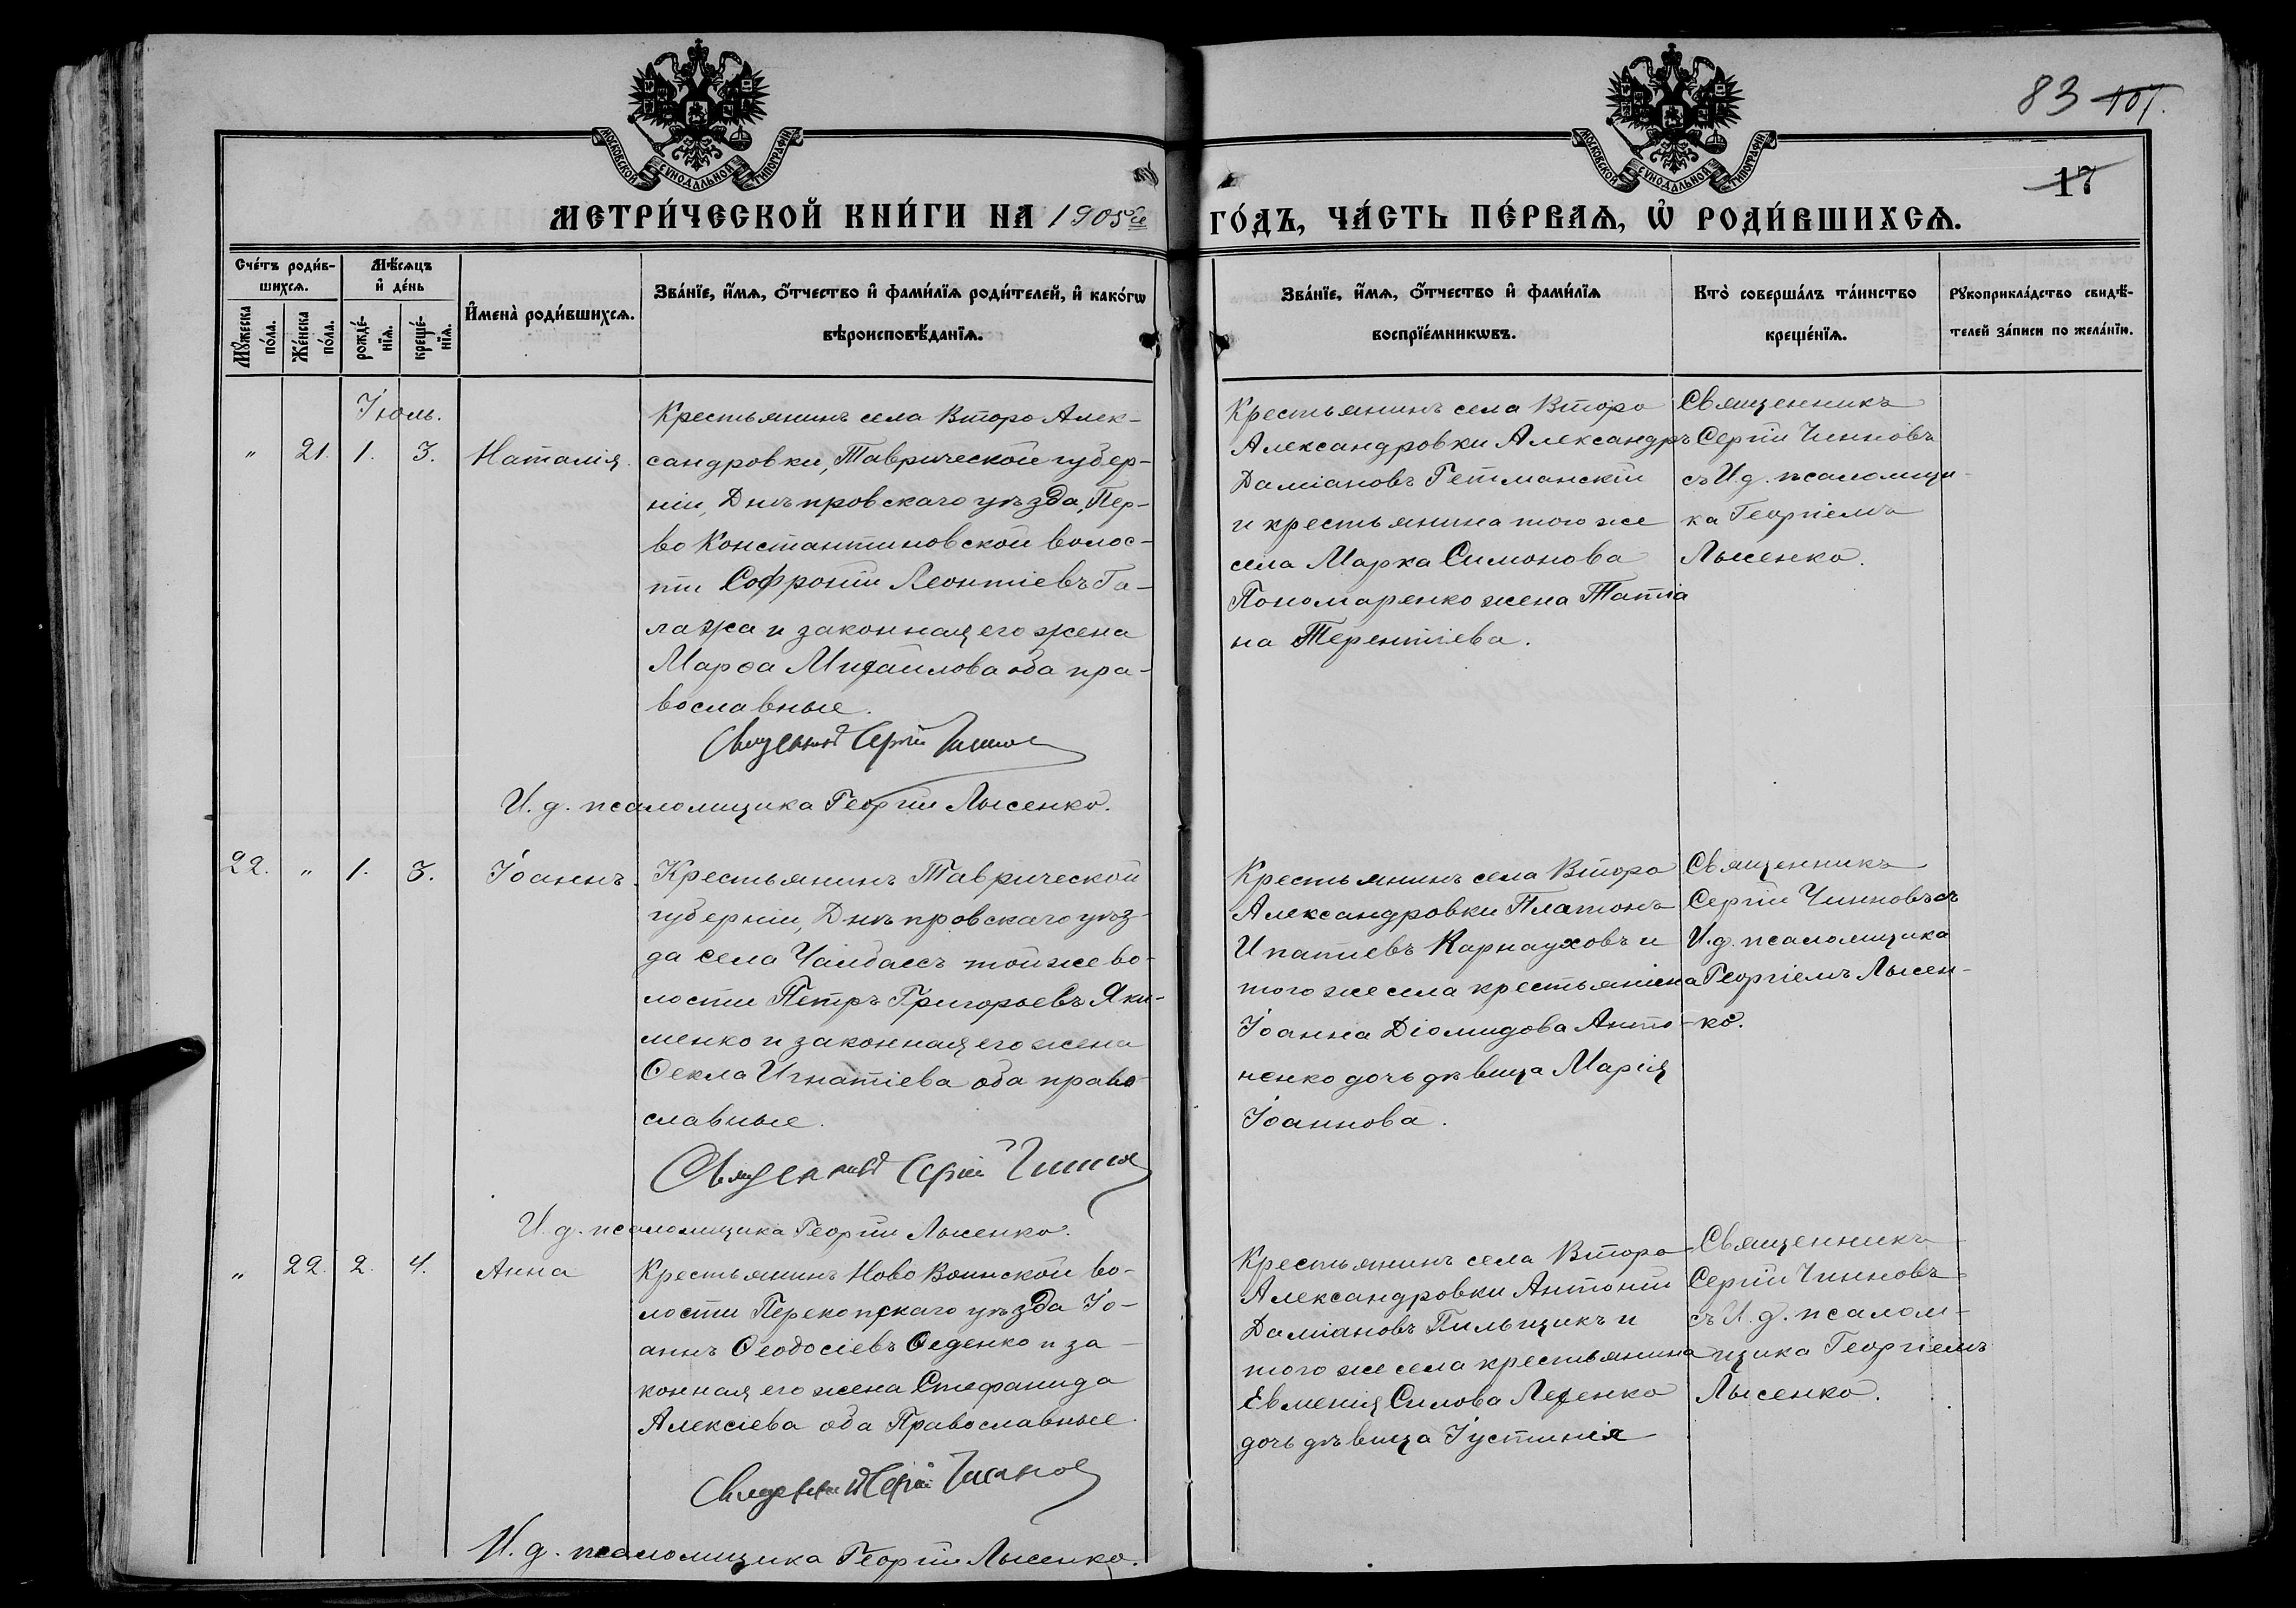 83 107.
17
МОСКОВСКОЙ СѴНОДАЛЬНОЙ ТИПОГРАФІИ
МОСКОВСКОЙ СѴНОДАЛЬНОЙ ТИПОГРАФІИ
МЕТРИ́ЧЕСКОЙ КНИ́ГИ НА 1905й
ГО́ДЪ, ЧА́СТЬ ПЕ́РВАѦ, Ѡ҆ РОДИ́ВШИХСѦ.
Сче́тъ роди́в-
шихсѧ.
Мѣ́сѧцъ
и҆ де́нь
Мꙋ́жеска
по́ла.
Же́нска
по́ла.
рожде́-
нїѧ.
креще́-
нїѧ.
И҆мена̀ роди́вшихсѧ.
Зва́нїе, и҆́мѧ, ѻ҆́тчество и҆ фами́лїѧ роди́телей, и҆ како́гѡ
вѣроисповѣ́данїѧ.
Зва́нїе, и҆́мѧ, ѻ҆́тчество и҆ фами́лїѧ
воспрїе́мникѡвъ.
Кто̀ соверша́лъ та́инство
креще́нїѧ.
Рꙋкоприкла́дство свидѣ́-
телей за́писи по жела́нїю.
Іюль.
" 21. 1. 3. Наталія.
Крестьянинъ села Второ Алек-
сандровки, Таврической губер-
ніи, Днѣпровскаго уѣзда, Пер-
во Константиновской волос-
ти Софроній Леонтіевъ Га-
лажа и законная его жена
Марѳа Михаилова оба пра-
вославные.
Священникъ Сергій Чинновъ
И. д. псаломщика Георгій Лысенко.
Крестьянинъ села Второ
Александровки Александръ
Даміановъ Гетманскій
и крестьянина того же
села Марка Симонова
Пономаренко жена Татіа
на Терентіева.
Священникъ
Сергій Чинновъ
съ И. д. псаломщи-
ка Георгіемъ
Лысенко.
22. " 1. 3. Іоаннъ.
Крестьянинъ Таврической
губерніи, Днѣпровскаго уѣз-
да села Чалбасъ той же во-
лости Петръ Григорьевъ Яки-
менко и законная его жена
Ѳекла Игнатіева оба право-
славные.
Священникъ Сергій Чинновъ
И. д. псаломщика Георгій Лысенко.
Крестьянинъ села Второ
Александровки Платонъ
Ипатіевъ Карнауховъ и
того же села крестьянина
Іоанна Діомидова Анто-
ненко дочь дѣвица Марія
Іоаннова.
Священникъ
Сергій Чинновъ съ
И. д. псаломщика
Георгіемъ Лысен-
ко.
" 22. 2. 4. Анна
Крестьянинъ Ново Воинской во-
лости Перекопскаго уѣзда Іо-
аннъ Ѳеодосіевъ Ѳеденко и за-
конная его жена Стефанида
Алексіева оба Православные.
Священникъ Сергій Чинновъ
И. д. псаломщика Георгій Лысенко.
Крестьянинъ села Второ
Александровки Антоній
Даміановъ Пильщикъ и
того же села крестьянина
Евменія Силова
дочь дѣвица Іустинія
Священникъ
Сергій Чинновъ
съ И. д. псалом-
щика Георгіемъ
Лысенко.